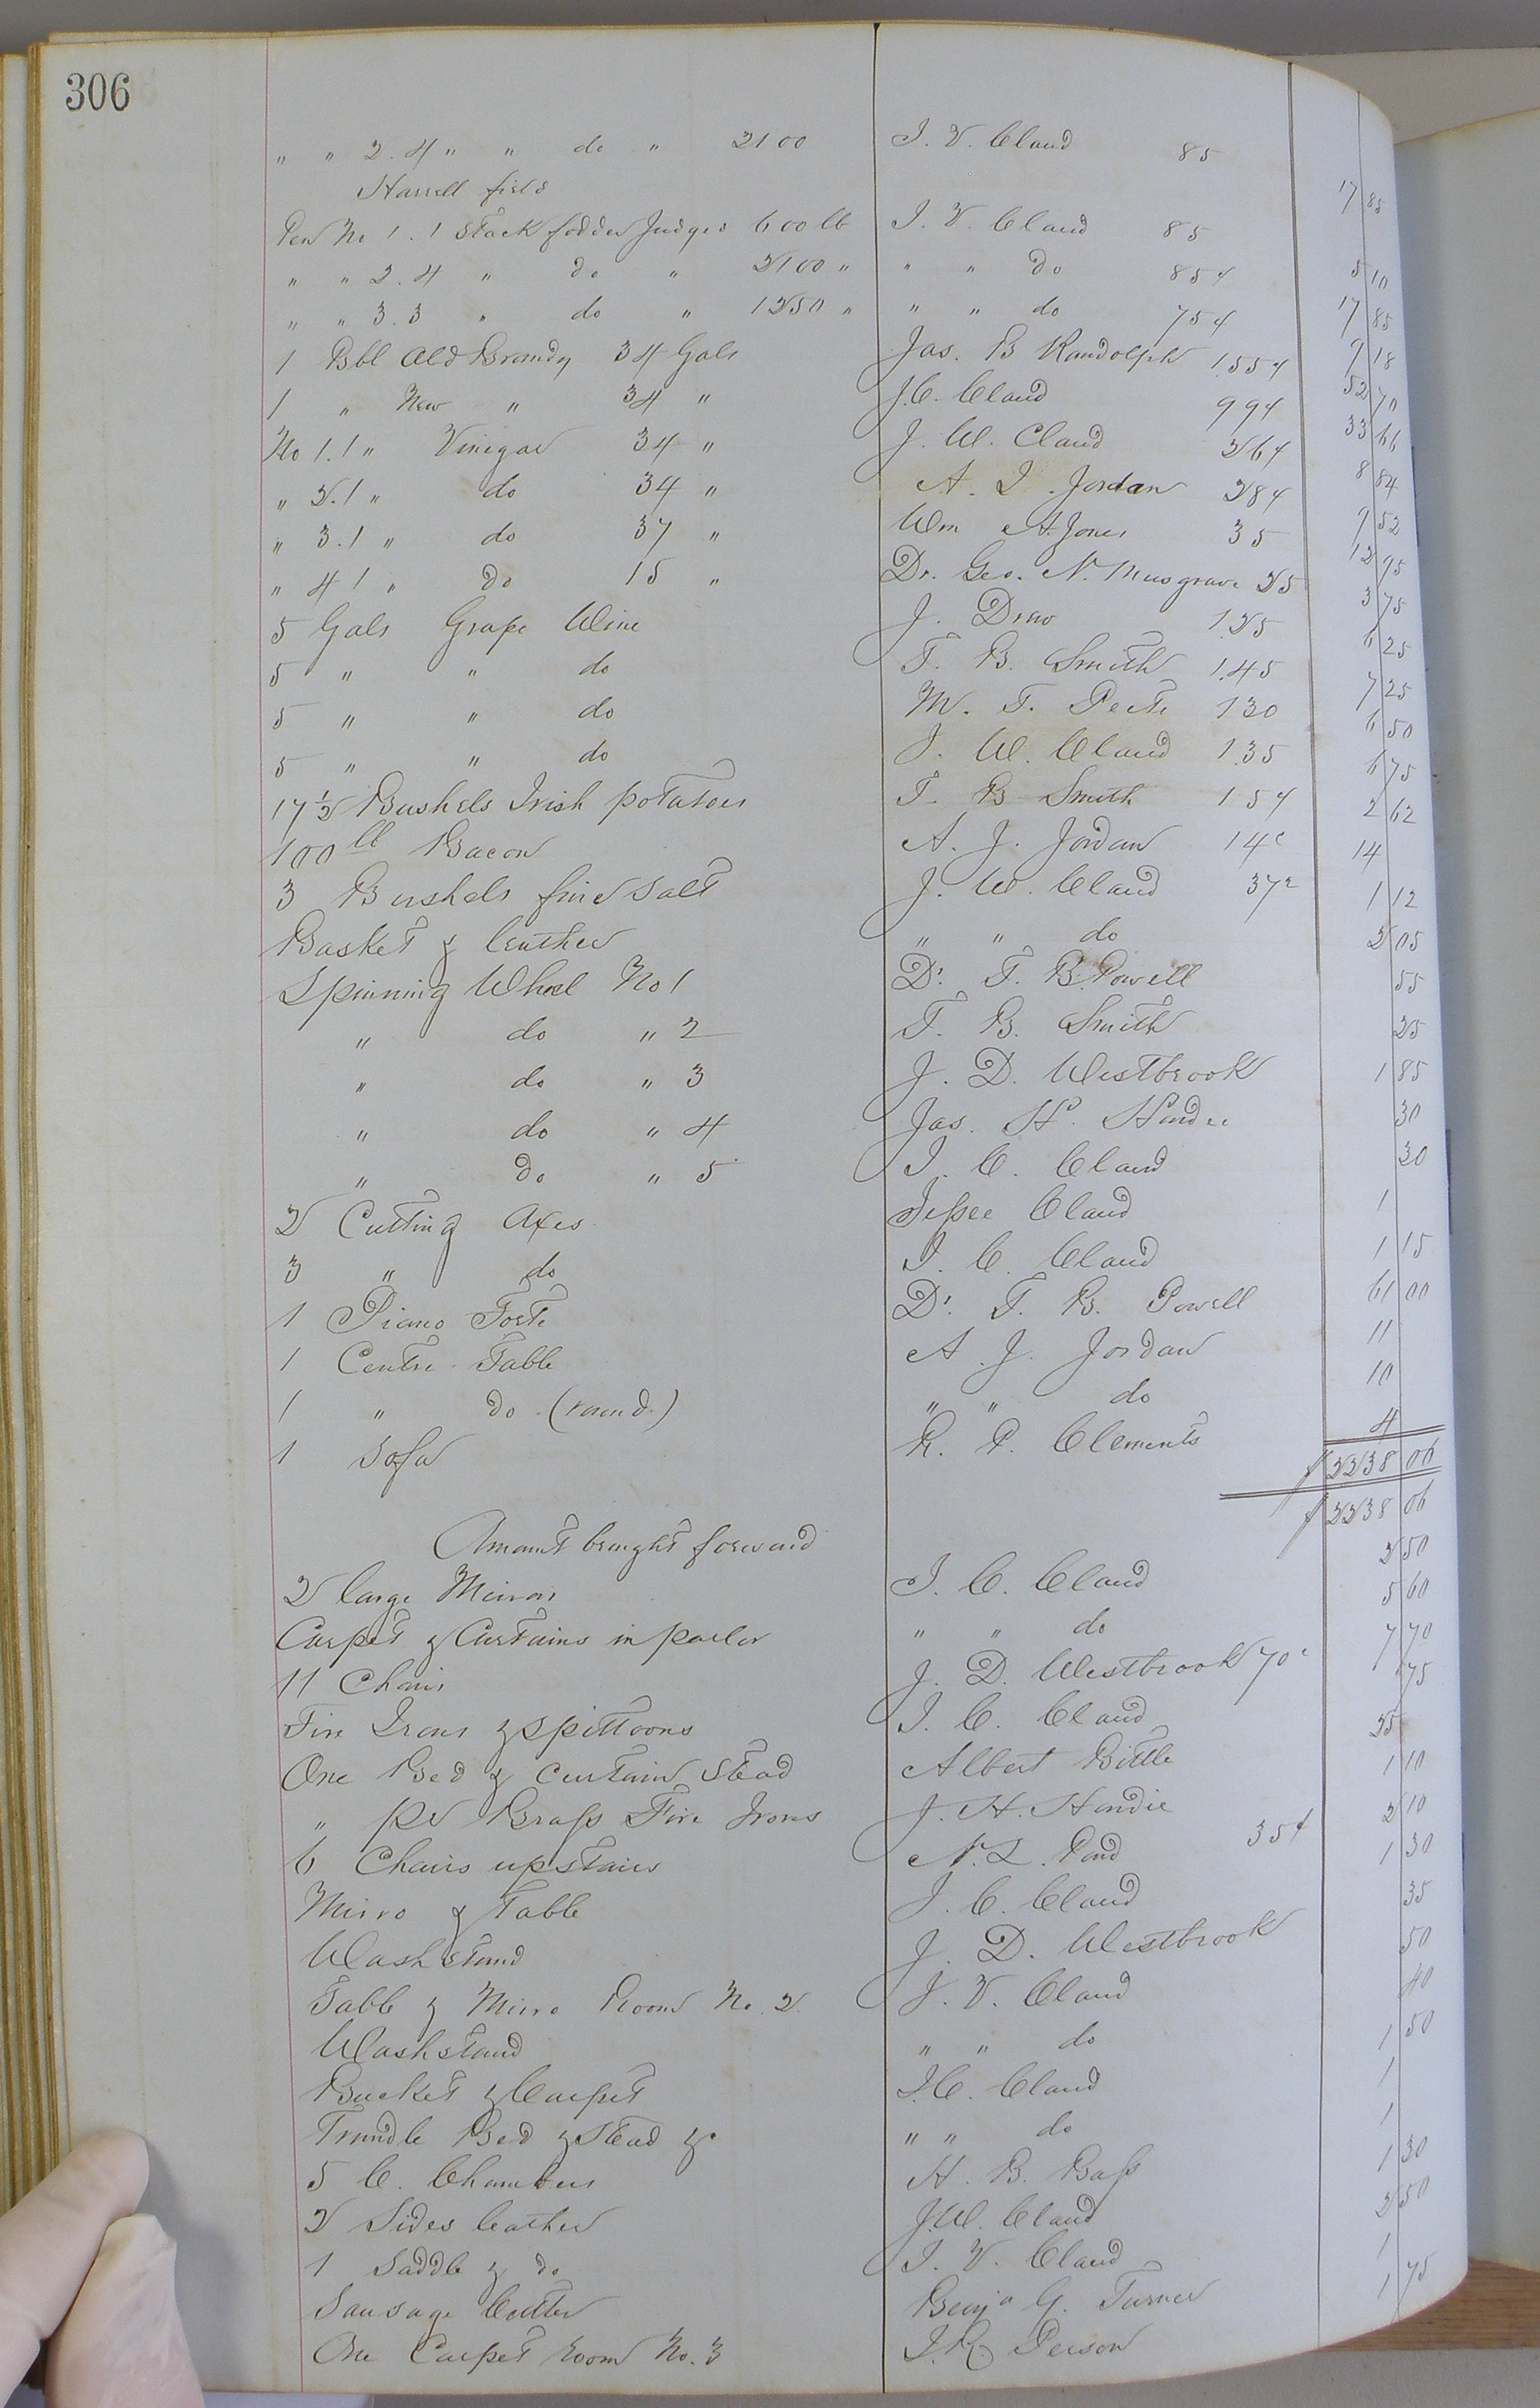 306
" " 2. 4 " " do " 2100 J. V. Claud 85 17 85
Harrell field
Pen No 1. 1 Stack fodder Judges 600 lb J. V. Claud 85 5 10
" " 2. 4 " do " 2100 " " " do 85¢ 17 85
" " 3. 3 " do " 1250 " " " do 75¢ 9 18
1 Bbl Old Brandy 34 Gals Jas. B Randolph 1.55¢ 52 70
1 " New " 34 " J. C. Claud 99¢ 33 66
No 1. 1 " Vinegar 34 " J. W. Claud 26¢ 8 84
" 2. 1 " do 34 " A. J. Jordan 28¢ 9 52
" 3. 1 " do 37 " Wm A. Jones 35 12 95
" 4 1 " do 15 " Dr. Geo. N. Musgrave 25 3 75
5 Gals Grape Wine J. Drew 1.25 6 25
5 " " do T. B. Smith 1.45 7 25
5 " " do M. T. Peete 130 6 50
5 " " do J. W. Claud 1.35 6 75
17 1/2 Bushels Irish potatoes T. B Smith 15¢ 2 62
100 lb Bacon A. J. Jordan 14c 14
3 Bushels fine Salt J. W. Claud 37 1/2 1 12
Basket & leather " " do 2 05
Spinning Wheel No 1 Dr. T. B. Powell 55
" do " 2 T. B. Smith 25
" do " 3 J. D. Westbrook 1 85
" do " 4 Jas. H. Hardee 30
" do " 5 J. C. Claud 30
2 Cutting Axes Jessee Claud 1
3 " do J. C. Claud 1 15
1 Piano Forte Dr. T. B. Powell 61 00
1 Centre Table A. J. Jordan 11
1 " do (round.) " " do 10
1 Sofa R. P. Clements 4
$ 2238 06
Amount brought forward $ 2238 06
2 large Mirrors J. C. Claud 2 50
Carpet & Curtains in parlor " " do 5 60
11 Chairs J. D. Westbrook 70c 7 70
Fire Irons & Spittoons J. C. Claud 75
One Bed & Curtain Stead Albert Bittle 25
" pr Brass Fire Irons J. H. Hardie 1 10
6 Chairs upstairs N. L. Pond 35¢ 2 10
Mirro & Table J. C. Claud 1 30
Washstand J. D. Westbrook 35
Table & Mirro Room No. 2 J. V. Claud 50
Washstand " " do 40
Bucket & Carpet J. C. Claud 1 50
Trundle Bed & Stead & " " do 1
5 C. Chambers H. B. Bass 1
2 Sides leather J. W. Claud 1 30
1 Saddle & do J. V. Claud 2 50
Sausage Cutter Benja G. Turner 1
One Carpet Room No. 3 J. R. Person 1 75